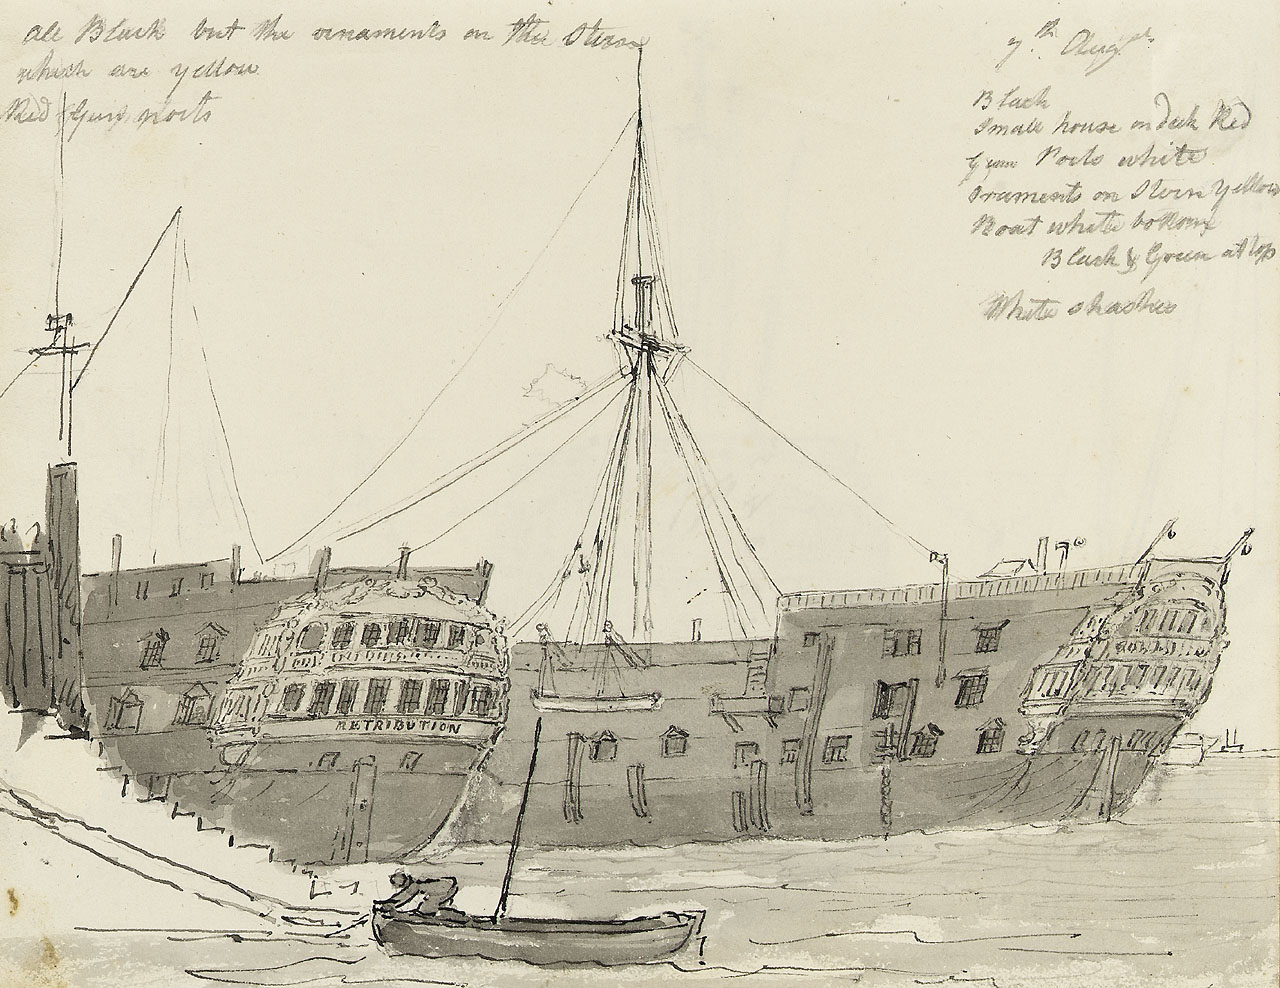 All Black but the ornaments on the Stern
which are yellow
Red Gun ports
7th Augst
Black
Small house on deck Red
Gun Ports white
Ornaments on Stern Yellow
Boat white bottom
Black & Green at top
White
RETRIBUTION